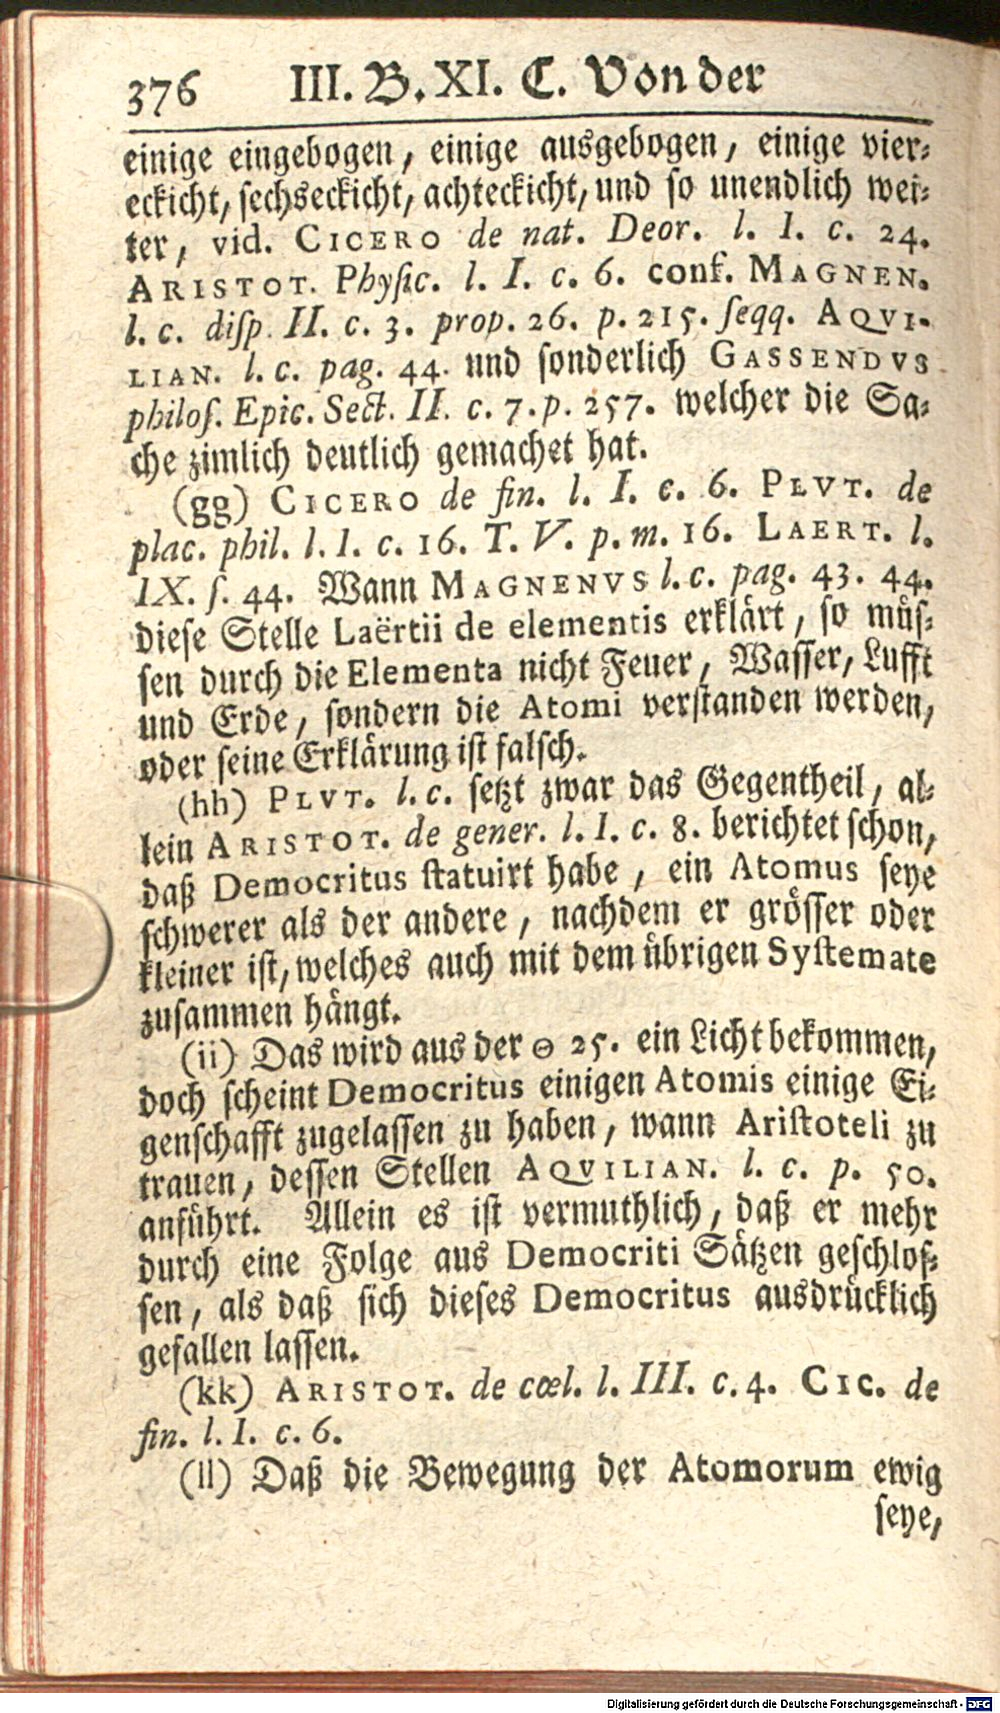 376 III. B. XI. C. Von der
einige eingebogen, einige ausgebogen, einige vier⸗
eckicht, sechseckicht, achteckicht, und so unendlich wei⸗
ter, vid. CICERO de nat. Deor. l. I. c. 24.
ARISTOT. Physic. l. I. c. 6. conf. MAGNEN.
l. c. disp. II. c. 3. prop. 26. p. 215. seqq. AQVI-
LIAN. l. c. pag. 44. und sonderlich GASSENDVS
philos. Epic. Sect. II. c. 7. p. 257. welcher die Sa⸗
che zimlich deutlich gemachet hat.
(gg) CICERO de fin. l. I. c. 6. PLVT. de
plac. phil. l. I. c. 16. T. V. p. m. 16. LAERT. l.
IX. s. 44. Wann MAGNENVS l. c. pag. 43. 44.
diese Stelle Laërtii de elementis erklärt, so müs⸗
sen durch die Elementa nicht Feuer, Wasser, Lufft
und Erde, sondern die Atomi verstanden werden,
oder seine Erklärung ist falsch.
(hh) PLVT. l. c. setzt zwar das Gegentheil, al⸗
lein ARISTOT. de gener. l. I. c. 8. berichtet schon,
daß Democritus statuirt habe, ein Atomus seye
schwerer als der andere, nachdem er grösser oder
kleiner ist, welches auch mit dem übrigen Systemate
zusammen hängt.
(ii) Das wird aus der Θ 25. ein Licht bekommen,
doch scheint Democritus einigen Atomis einige Ei⸗
genschafft zugelassen zu haben, wann Aristoteli zu
trauen, dessen Stellen AQVILIAN. l. c. p. 50.
anführt. Allein es ist vermuthlich, daß er mehr
durch eine Folge aus Democriti Sätzen geschlos⸗
sen, als daß sich dieses Democritus ausdrücklich
gefallen lassen.
(kk) ARISTOT. de cœl. l. III. c. 4. CIC. de
fin. l. I. c. 6.
(ll) Daß die Bewegung der Atomorum ewig
seye,
Digitalisierung gefördert durch die Deutsche Forschungsgemeinschaft - DFG